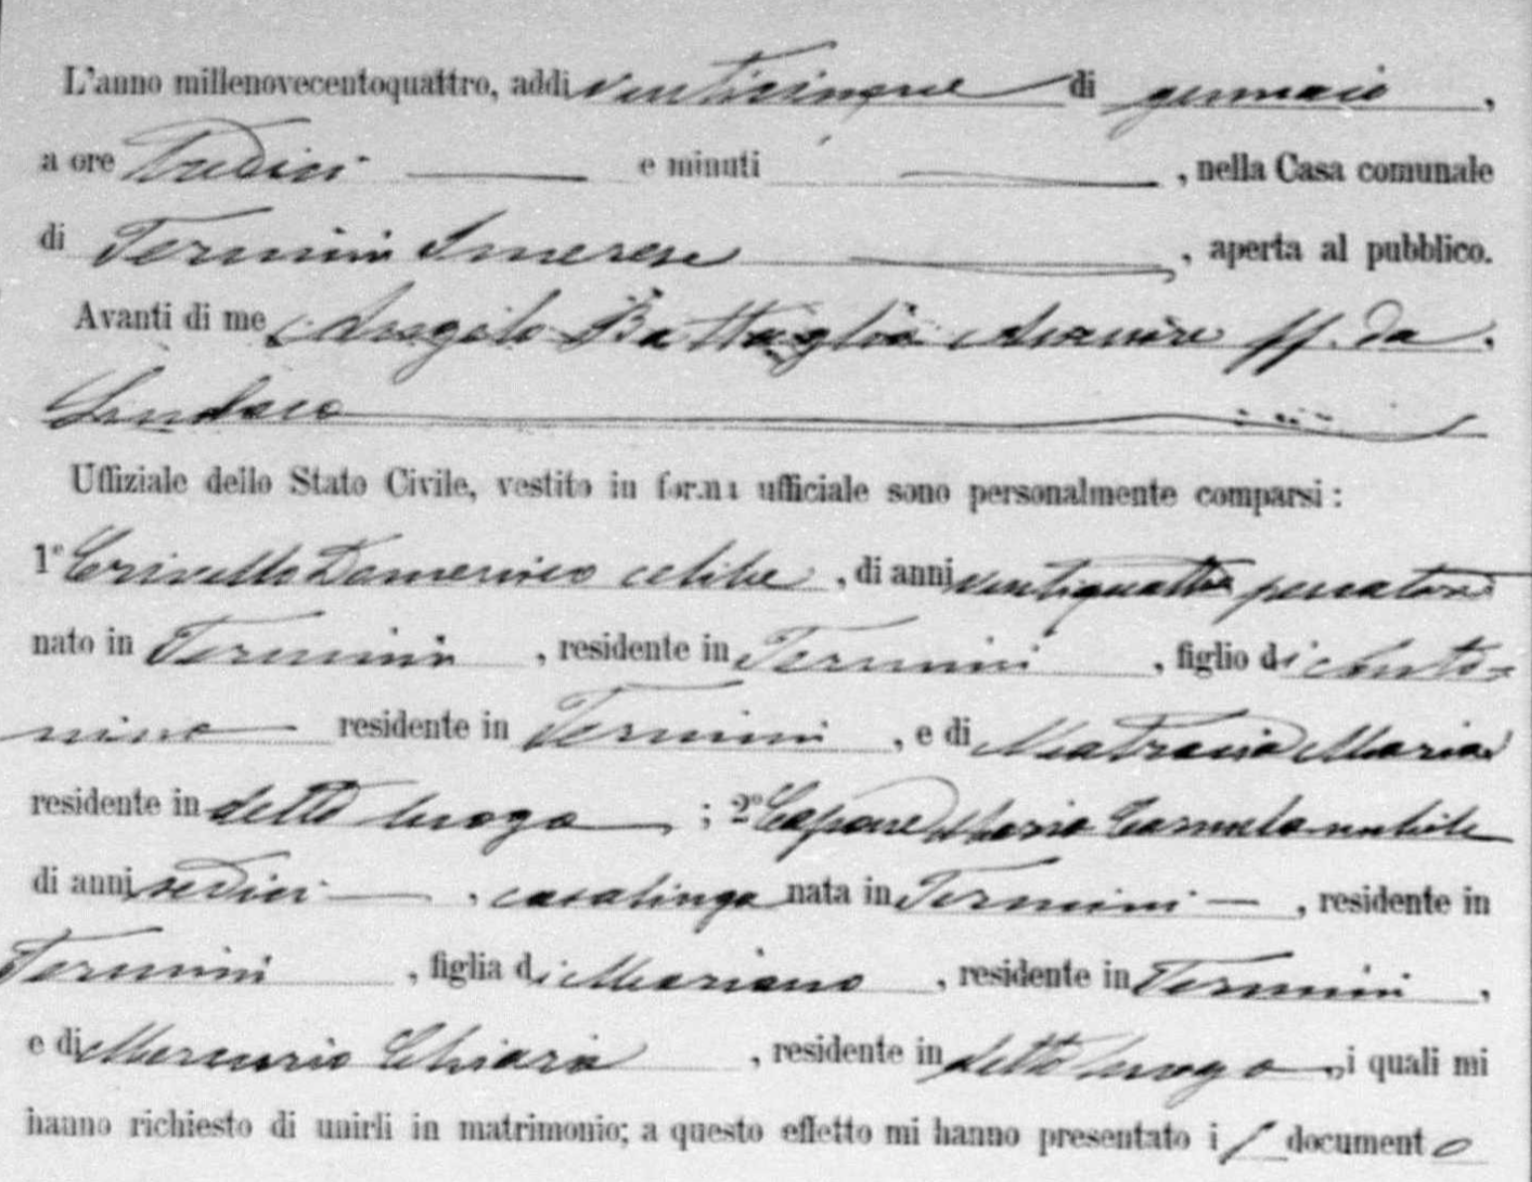 L'anno millenovecentoquattro, addi venticinque di gennaio,
a ore tredici e minuti , nella Casa comunale
di Termini Imerese , aperta al pubblico.
Avanti di me Angelo Battaglia ff. da
Sindaco
Uffiziale dello Stato Civile, vestito in forma ufficiale sono personalmente comparsi :
1º Crivello Domenico celibe, di anni ventiquattro pescatore
nato in Termini, residente in Termini, figlio di Anto-
nino residente in Termini, e di Matrania Maria
residente in detto luogo; 2º Capone Maria Carmela nubile
di anni sedici, casalinga nata in Termini, residente in
Termini, figlia di Mariano, residente in Termini,
e di Mercurio Chiara, residente in detto luogo, i quali mi
hanno richiesto di unirli in matrimonio; a questo effetto mi hanno presentato i l documento